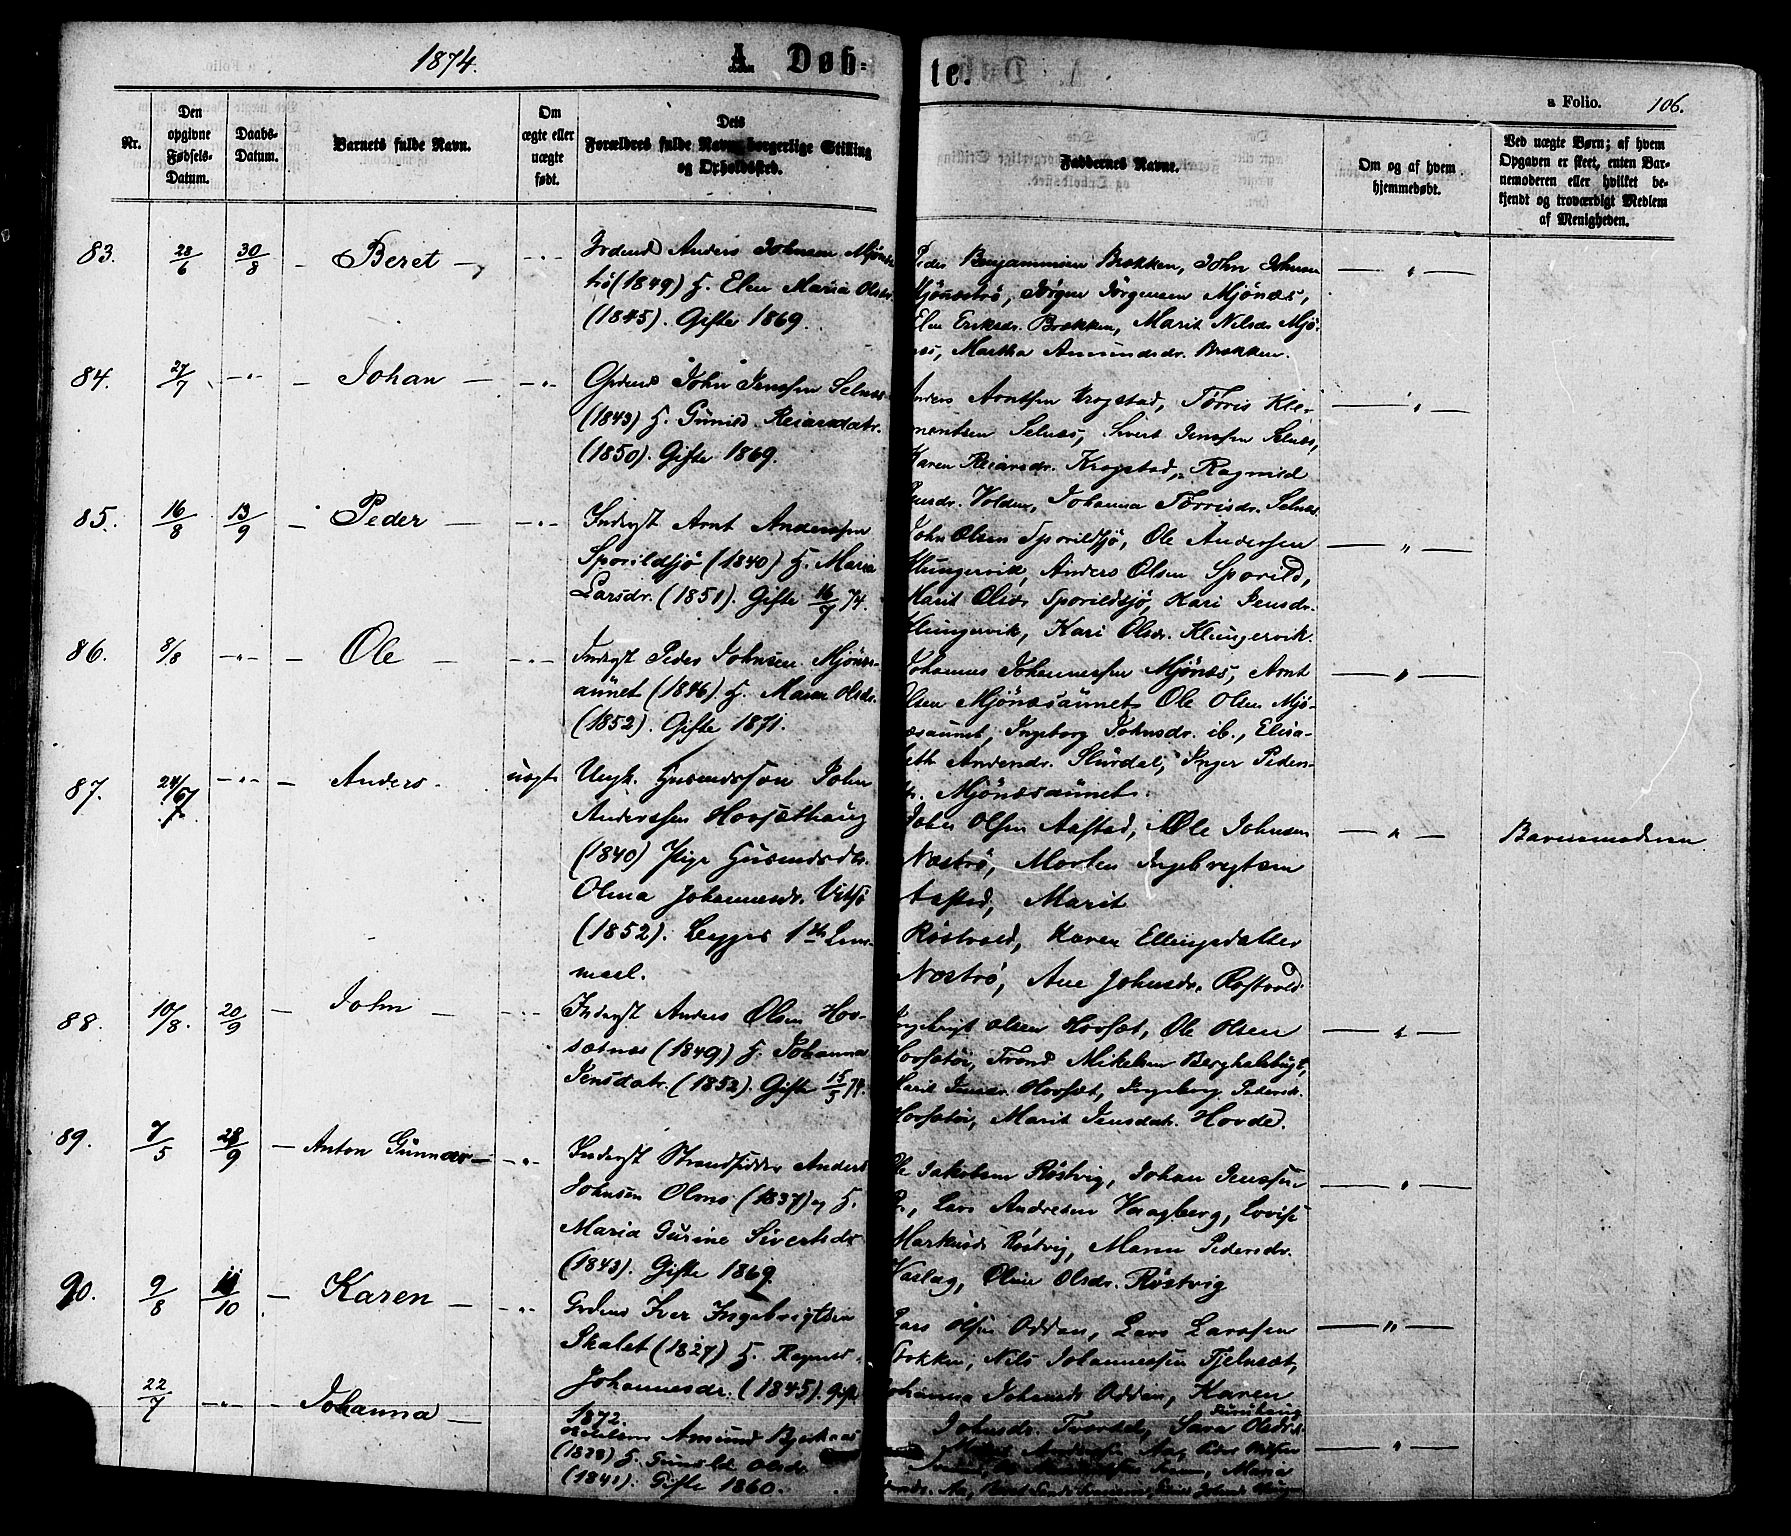 1874.
A. Døb-
te.
a Folio. 106.
Nr.
Den opgivne Fødsels-Datum.
Daabs-Datum.
Barnets fulde Navn.
Om ægte eller uægte født.
Forældres fulde Navne, borgerlige Stilling og Opholdssted.
Faddernes Navne.
Om og af hvem hjemmedøbt.
Ved uægte Børn; af hvem Opgaven er skeet, enten Barnemoderen eller hvilket bekjendt og troværdigt Medlem af Menigheden.
83. 28/6 30/8 — Beret —
Anders Johnsen Mjönæs-
trö (1849) H. Elen Maria Olsdr.
(1845). Gifte 1869.
Peder Benjaminsen Brækken, John Johnsen
Mjönæströ, Jörgen Jörgensen Mjönæs,
Elen Eriksdr. Brækken, Marit Nilsdr. Mjö-
næs, Martha Amundsdr. Brækken.
84. 27/7 — Johan —
Grdmd John Jenssen Selnæs
(1843) H. Gunild Reiersdatr.
(1850). Gifte 1869.
Anders Arntsen Krogstad, Törris Kle-
mentsen Selnæs, Sivert Jenssen Selnæs,
Karen Reiersdr. Krogstad, Ragnild
Jensdr. Volden, Johanna Törrisdr. Selnæs
85. 16/8 13/9 — Peder —
Inderst Arnt Anderssen
Sporildsjö (1840) H. Maria
Larsdr. (1851). Gifte 16/7 74.
John Olsen Sporildsjö, Ole Andersen
Klungervik, Anders Olsen Sporild,
Marit Olsdr. Sporildsjö, Kari Jensdr.
Klungervik, Kari Olsdr. Klungervik.
86. 8/8 — Ole —
Inderst Peder Johnsen Mjönæs-
aunet (1846) H. Maren Olsdr.
(1852). Gifte 1871.
Johannes Johannessen Mjönæs, Arnt
Olsen Mjönæsaunet Ole Olsen Mjö-
næsaunet, Ingeborg Johnsdr. ib., Elisa-
beth Andersdr. Slördal, Inger Peders-
dr. Mjönæsaunet.
87. 24/7 67 — Anders. uægte
Ungk. Husmandssøn John
Anderssen Hovsæthaug
(1840) Pige Husmandsdtr.
Olina Johannesdr. Vitsö
(1852). Begges 1ste Leier-
maal.
Johs Olsen Aastad, Ole Johnsen
Næströ, Morten Ingebrigtsen
Aastad, Marit
Röstvold, Karen Ellingsdatter
Næströ, Ane Johnsdr. Röstvold
Barnemoderen
88. 10/8 20/9 — John —
Inderst Anders Olsen Hov-
sætnæs (1849) H. Johanna
Jensdatr. (1852) Gifte 15/5 74.
Ingebrigt Olsen Hovsæt, Ole Olsen
Hovsætöi, Trond Mikelsen Berghalsbugt,
Marit Hovsæt, Ingeborg Pedersdr.
Hovsætöi, Marit Jensdatr. Hovde.
89. 7/5 28/9 — Anton Gunnar —
Inderst Strandsidder Anders
Johnsen Olmo (1837) og H.
Maria Gurine Sivertsdr.
(1843). Gifte 1869.
Ole Jakobsen Röstvig, Johan Jenssen
Lars Andresen Vaagberg, Lovise
Markusdr. Röstvig, Maren Pedersdr.
Oline Olsdr. Röstvig
90. 9/8 11/10 — Karen —
Grdmd Iver Ingebrigtsen
Skalet (1827) H. Ragnild
Johannesdr. (1845). Gifte
1872.
Lars Olsen Oddan, Lars Larssen
Nils Johannessen Fjelnsæt,
Johanna Johansdr. Oddan, Karen
Johnsdr. Sara Olsdr.
22/7 — Johanna —
Amund
(1828) H. Gunild Olsdr.
(1841). Gifte 1860.